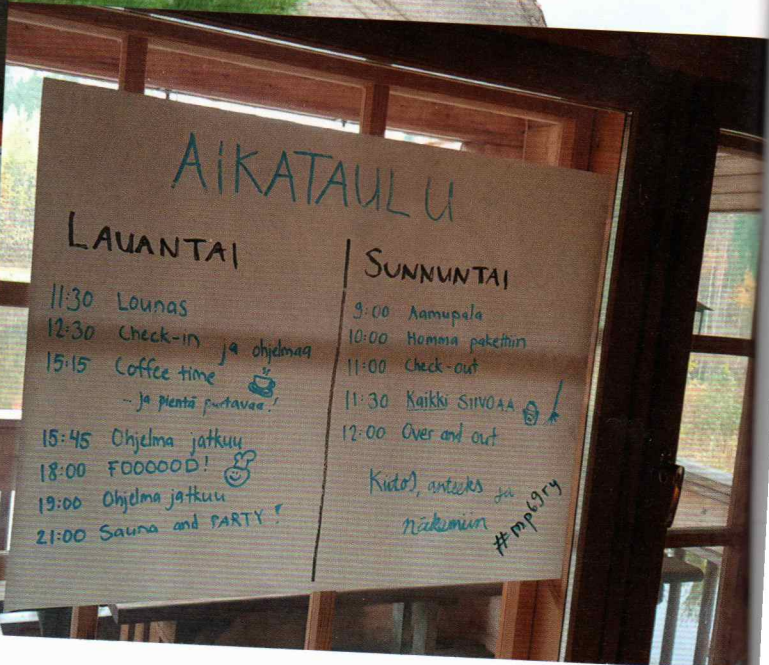 AIKATAULU
LAUANTAI
11:30 Lounas
12:30 Check-in ja ohjelmaa
15:15 Coffee time
- ja pientä purtavaa!
15:45 Ohjelma jatkuu
18:00 FOOOOOD!
19:00 Ohjelma jatkuu
21:00 Sauna and PARTY!
SUNNUNTAI
9:00 Aamupala
10:00 Homma pakettiin
11:00 Check-out
11:30 Kaikki SIIVOAA
12:00 Over and out
Kiitos, anteeks ja
näkemiin
#mp69ry